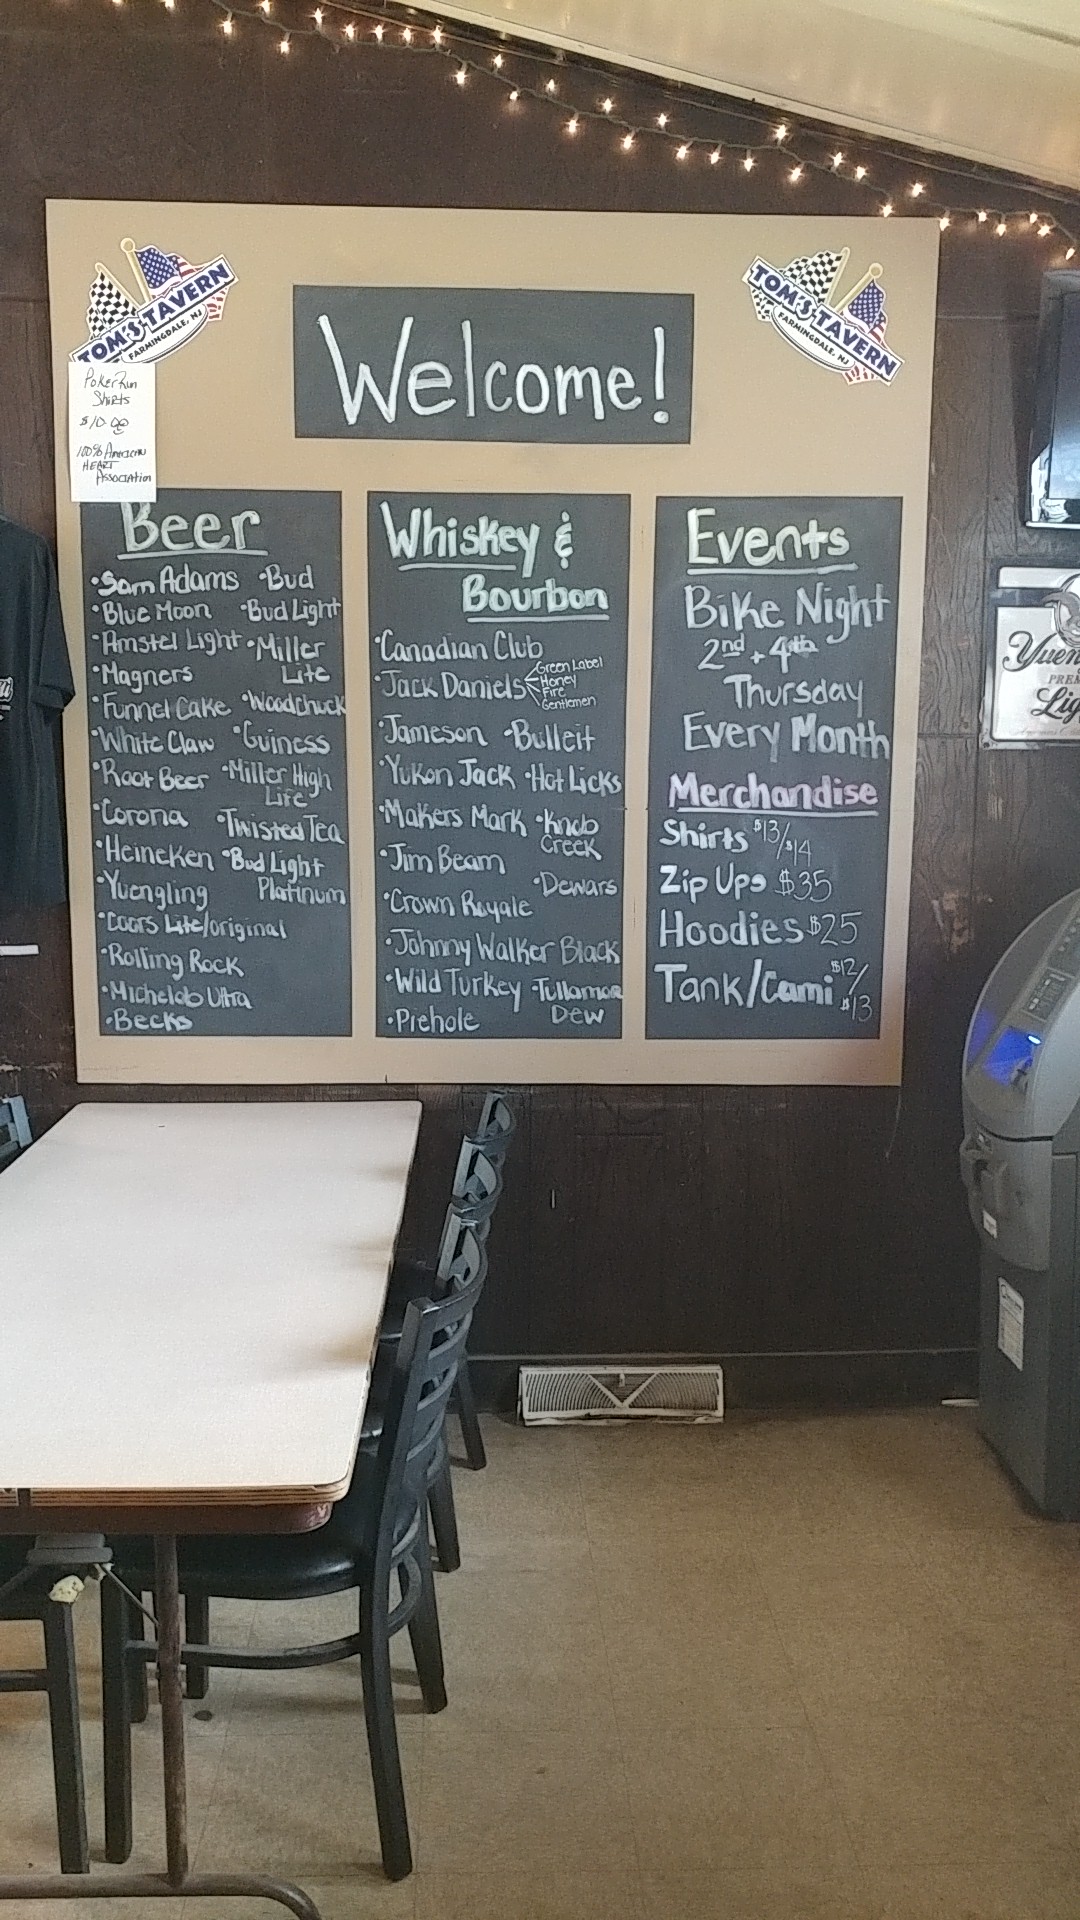 TOM'S TAVERN
FARMINGDALE, NJ
TOM'S TAVERN
FARMINGDALE, NJ
Welcome!
Poker Run
Shirts
$10.00
100% American
HEART
Association
Beer
•Sam Adams •Bud
•Blue Moon •Bud Light
•Amstel Light •Miller
Lite
•Magners
•Funnel Cake •Woodchuck
•White Claw •Guiness
•Root Beer •Miller High
Life
•Corona •Twisted Tea
•Heineken •Bud Light
Platinum
•Yuengling
•Coors Lite/original
•Rolling Rock
•Michelob Ultra
•Becks
Whiskey &
Bourbon
•Canadian Club
•Jack Daniels
Green Label
Honey
Fire
Gentlemen
•Jameson •Bulleit
•Yukon Jack •Hot Licks
•Makers Mark •Knob
Creek
•Jim Beam
•Dewars
•Crown Royale
•Johnny Walker Black
•Wild Turkey •Tullamore
Dew
•Piehole
Events
Bike Night
2nd + 4th
Thursday
Every Month
Merchandise
Shirts $13/$14
Zip Ups $35
Hoodies $25
Tank/Cami $12/$13
Yuen
PREM
Lig